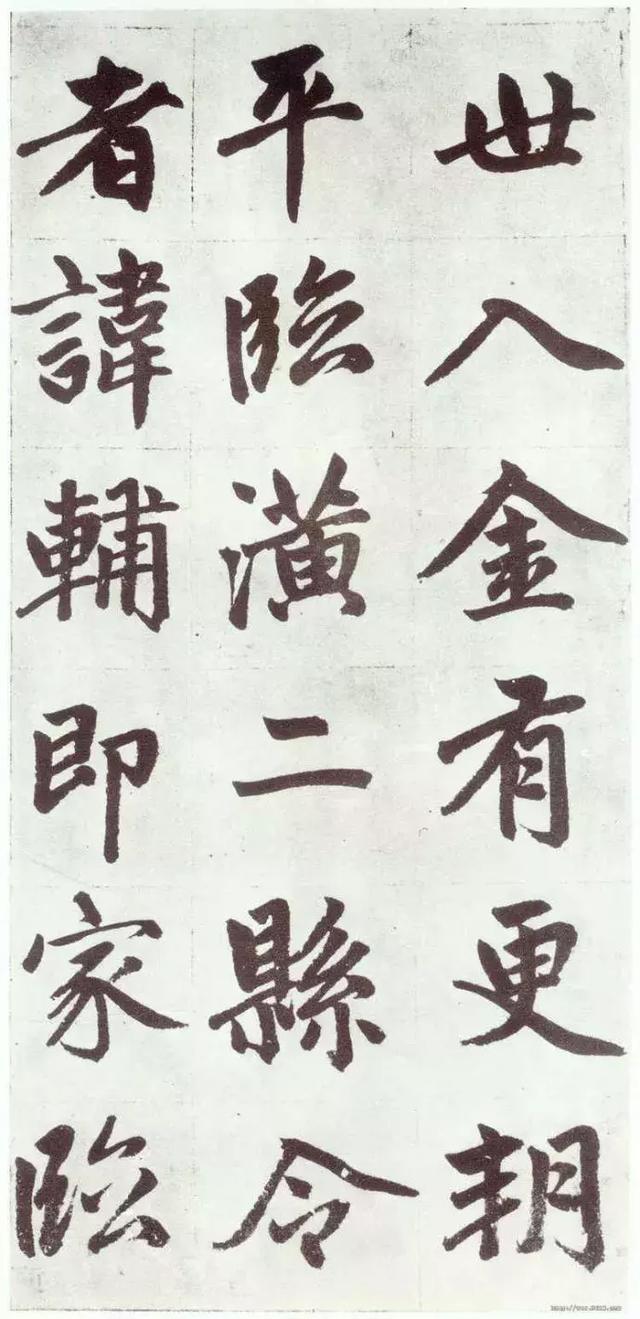 世入金有更朝
平臨潢二縣令
者諱輔即家臨